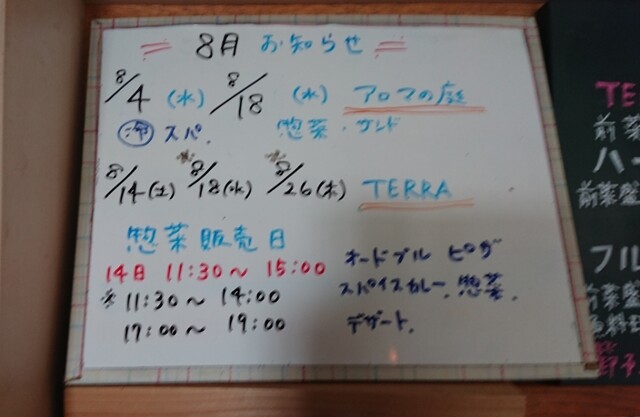 8月 お知らせ
8/4 (水) 8/18 (水) アロマの庭
冷 スパ. 惣菜・サンド
8/14(土) ※8/18(水) ※8/26(木) TERRA
惣菜販売日
14日 11:30〜 15:00 オードブル ピザ
※11:30〜 14:00 スパイスカレー. 惣菜.
17:00〜 19:00 デザート.
TE
前菜
ハ
前菜盤
フル
前菜盤